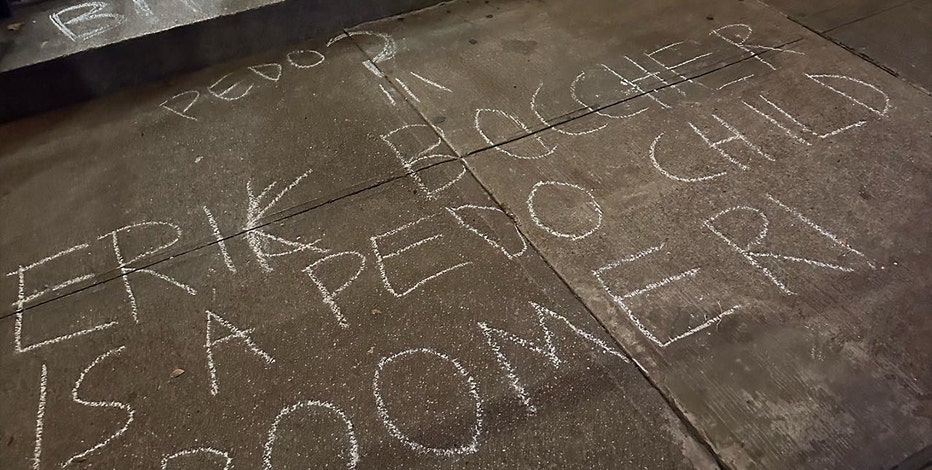 PEDO?
ERIK BOUCHER
IS A PEDO CHILD
ROOMER